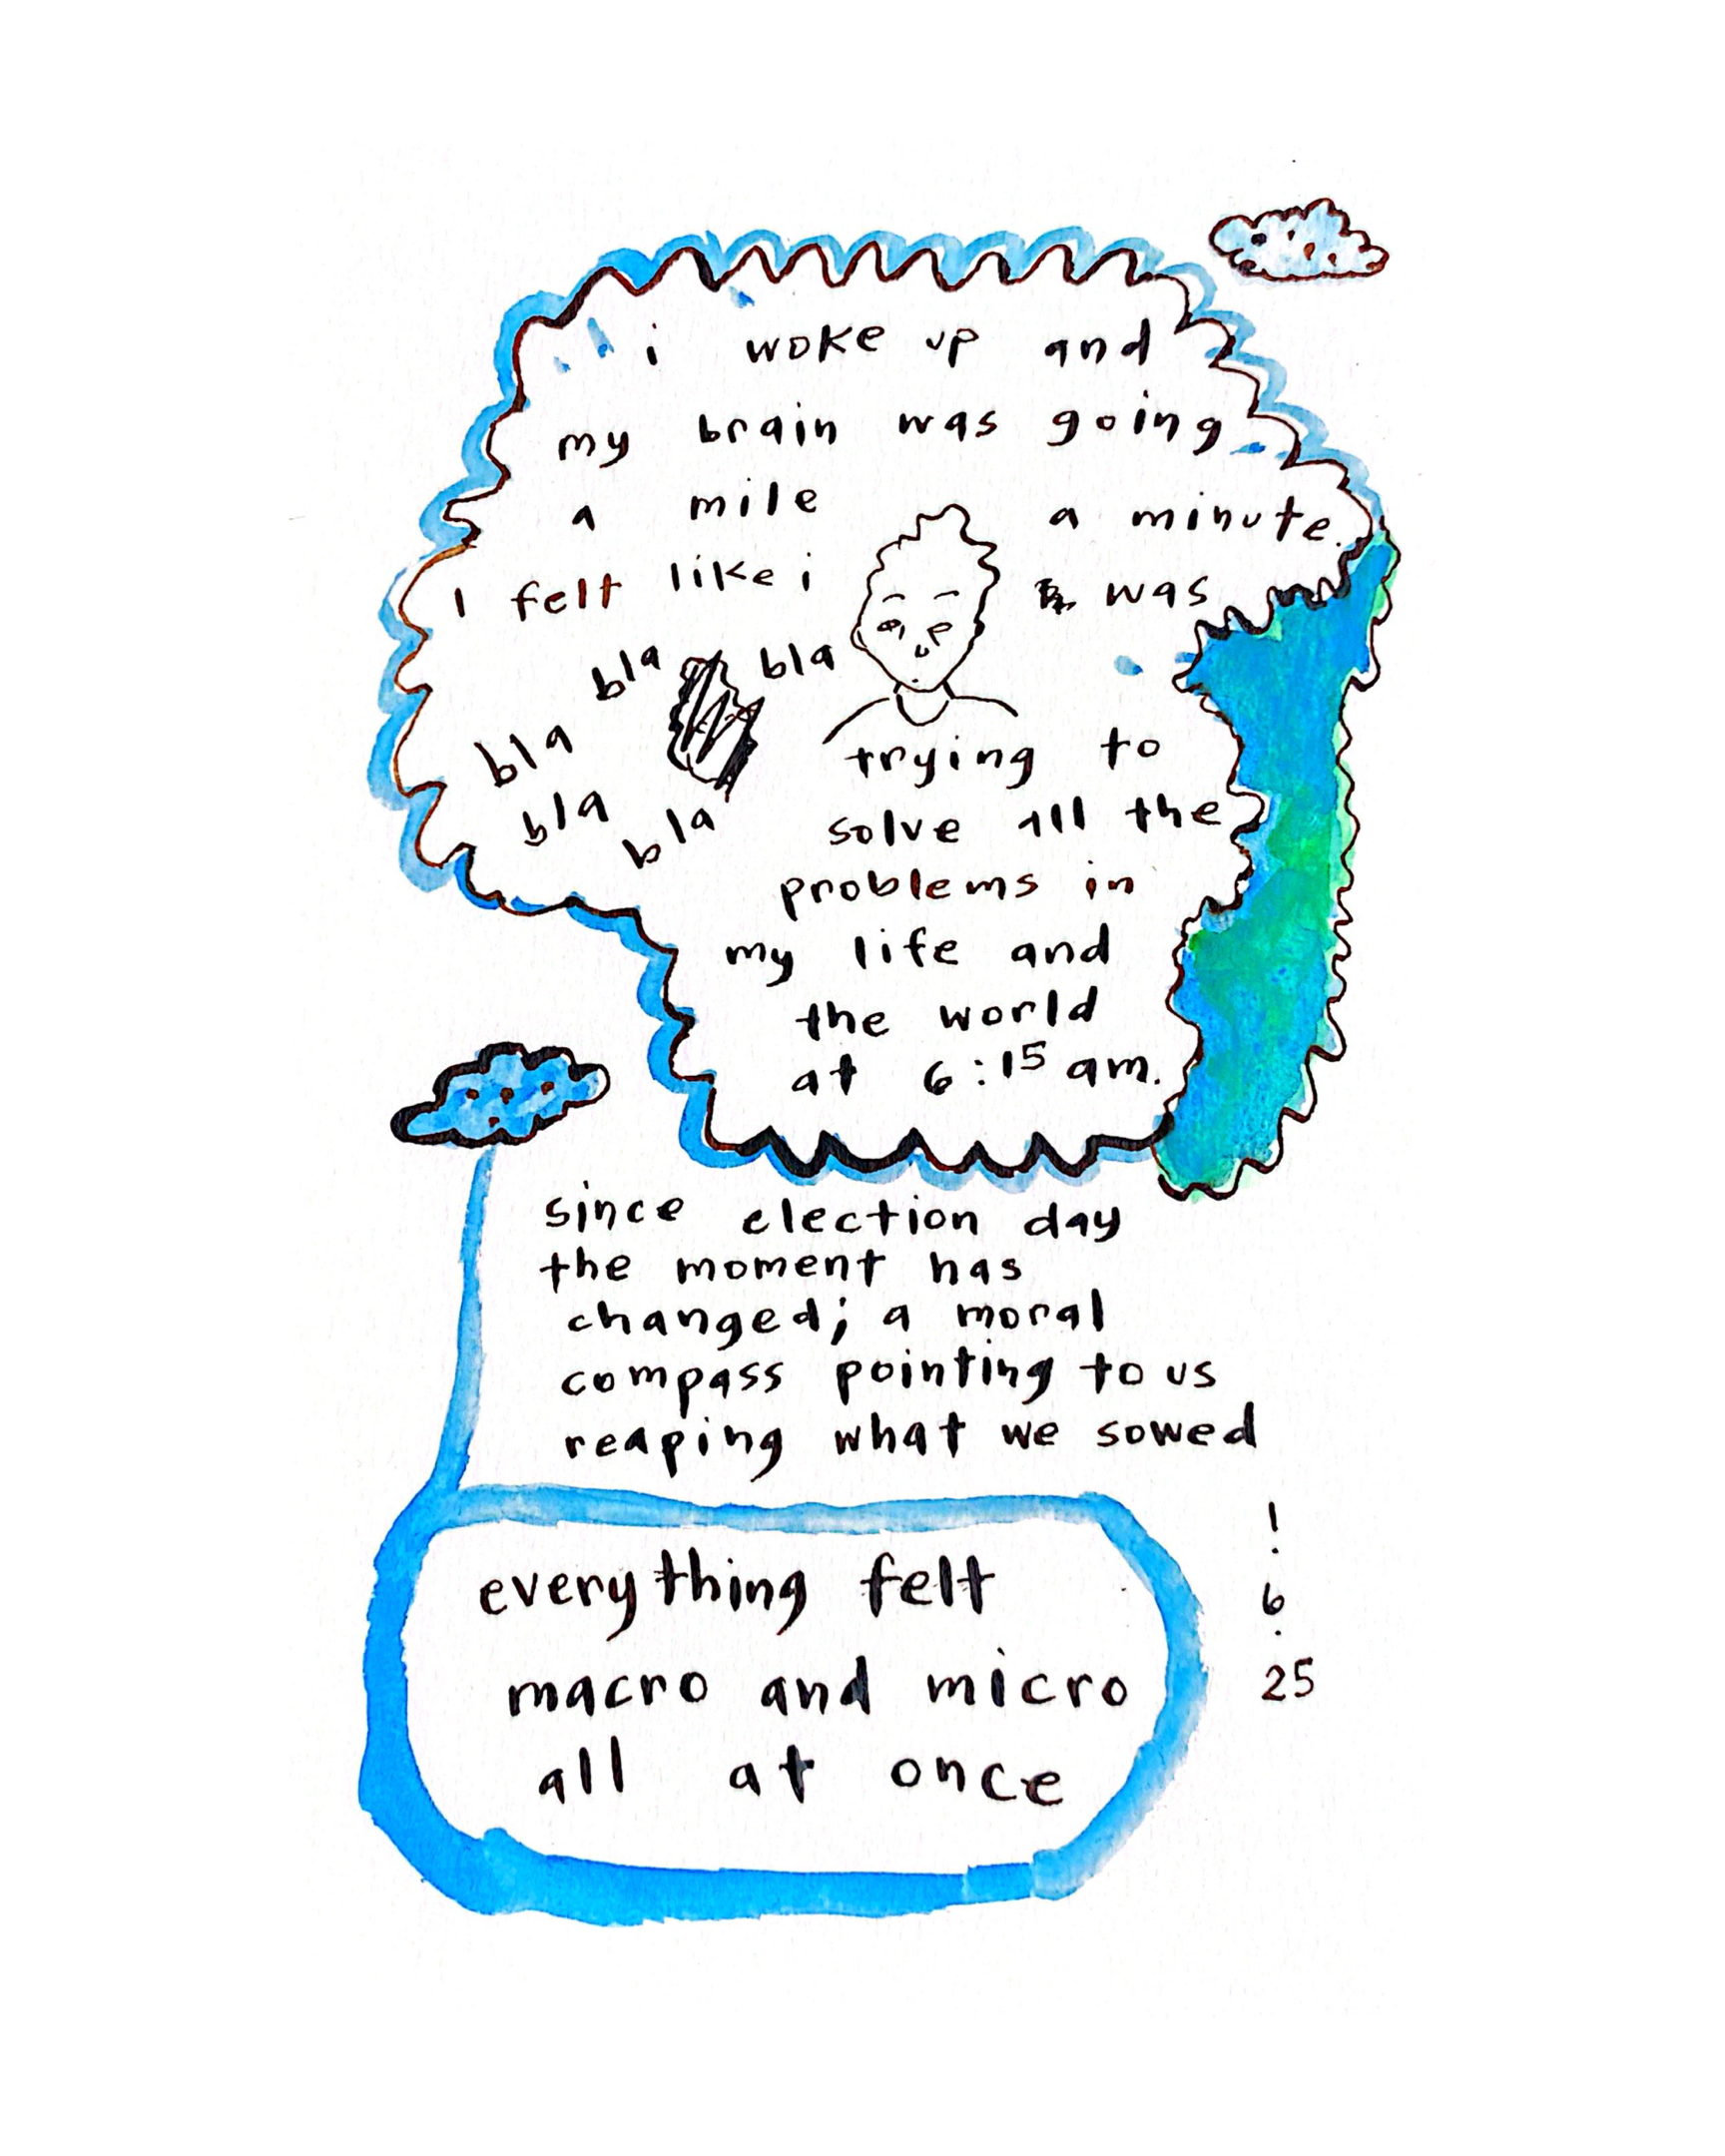 i woke up and
my brain was going
a mile a minute.
I felt like i was
bla bla
bla
bla bla
trying to
solve all the
problems in
my life and
the world
at 6:15 am.
since election day
the moment has
changed; a moral
compass pointing to us
reaping what we sowed
everything felt
macro and micro
all at once
1
.
6
.
25